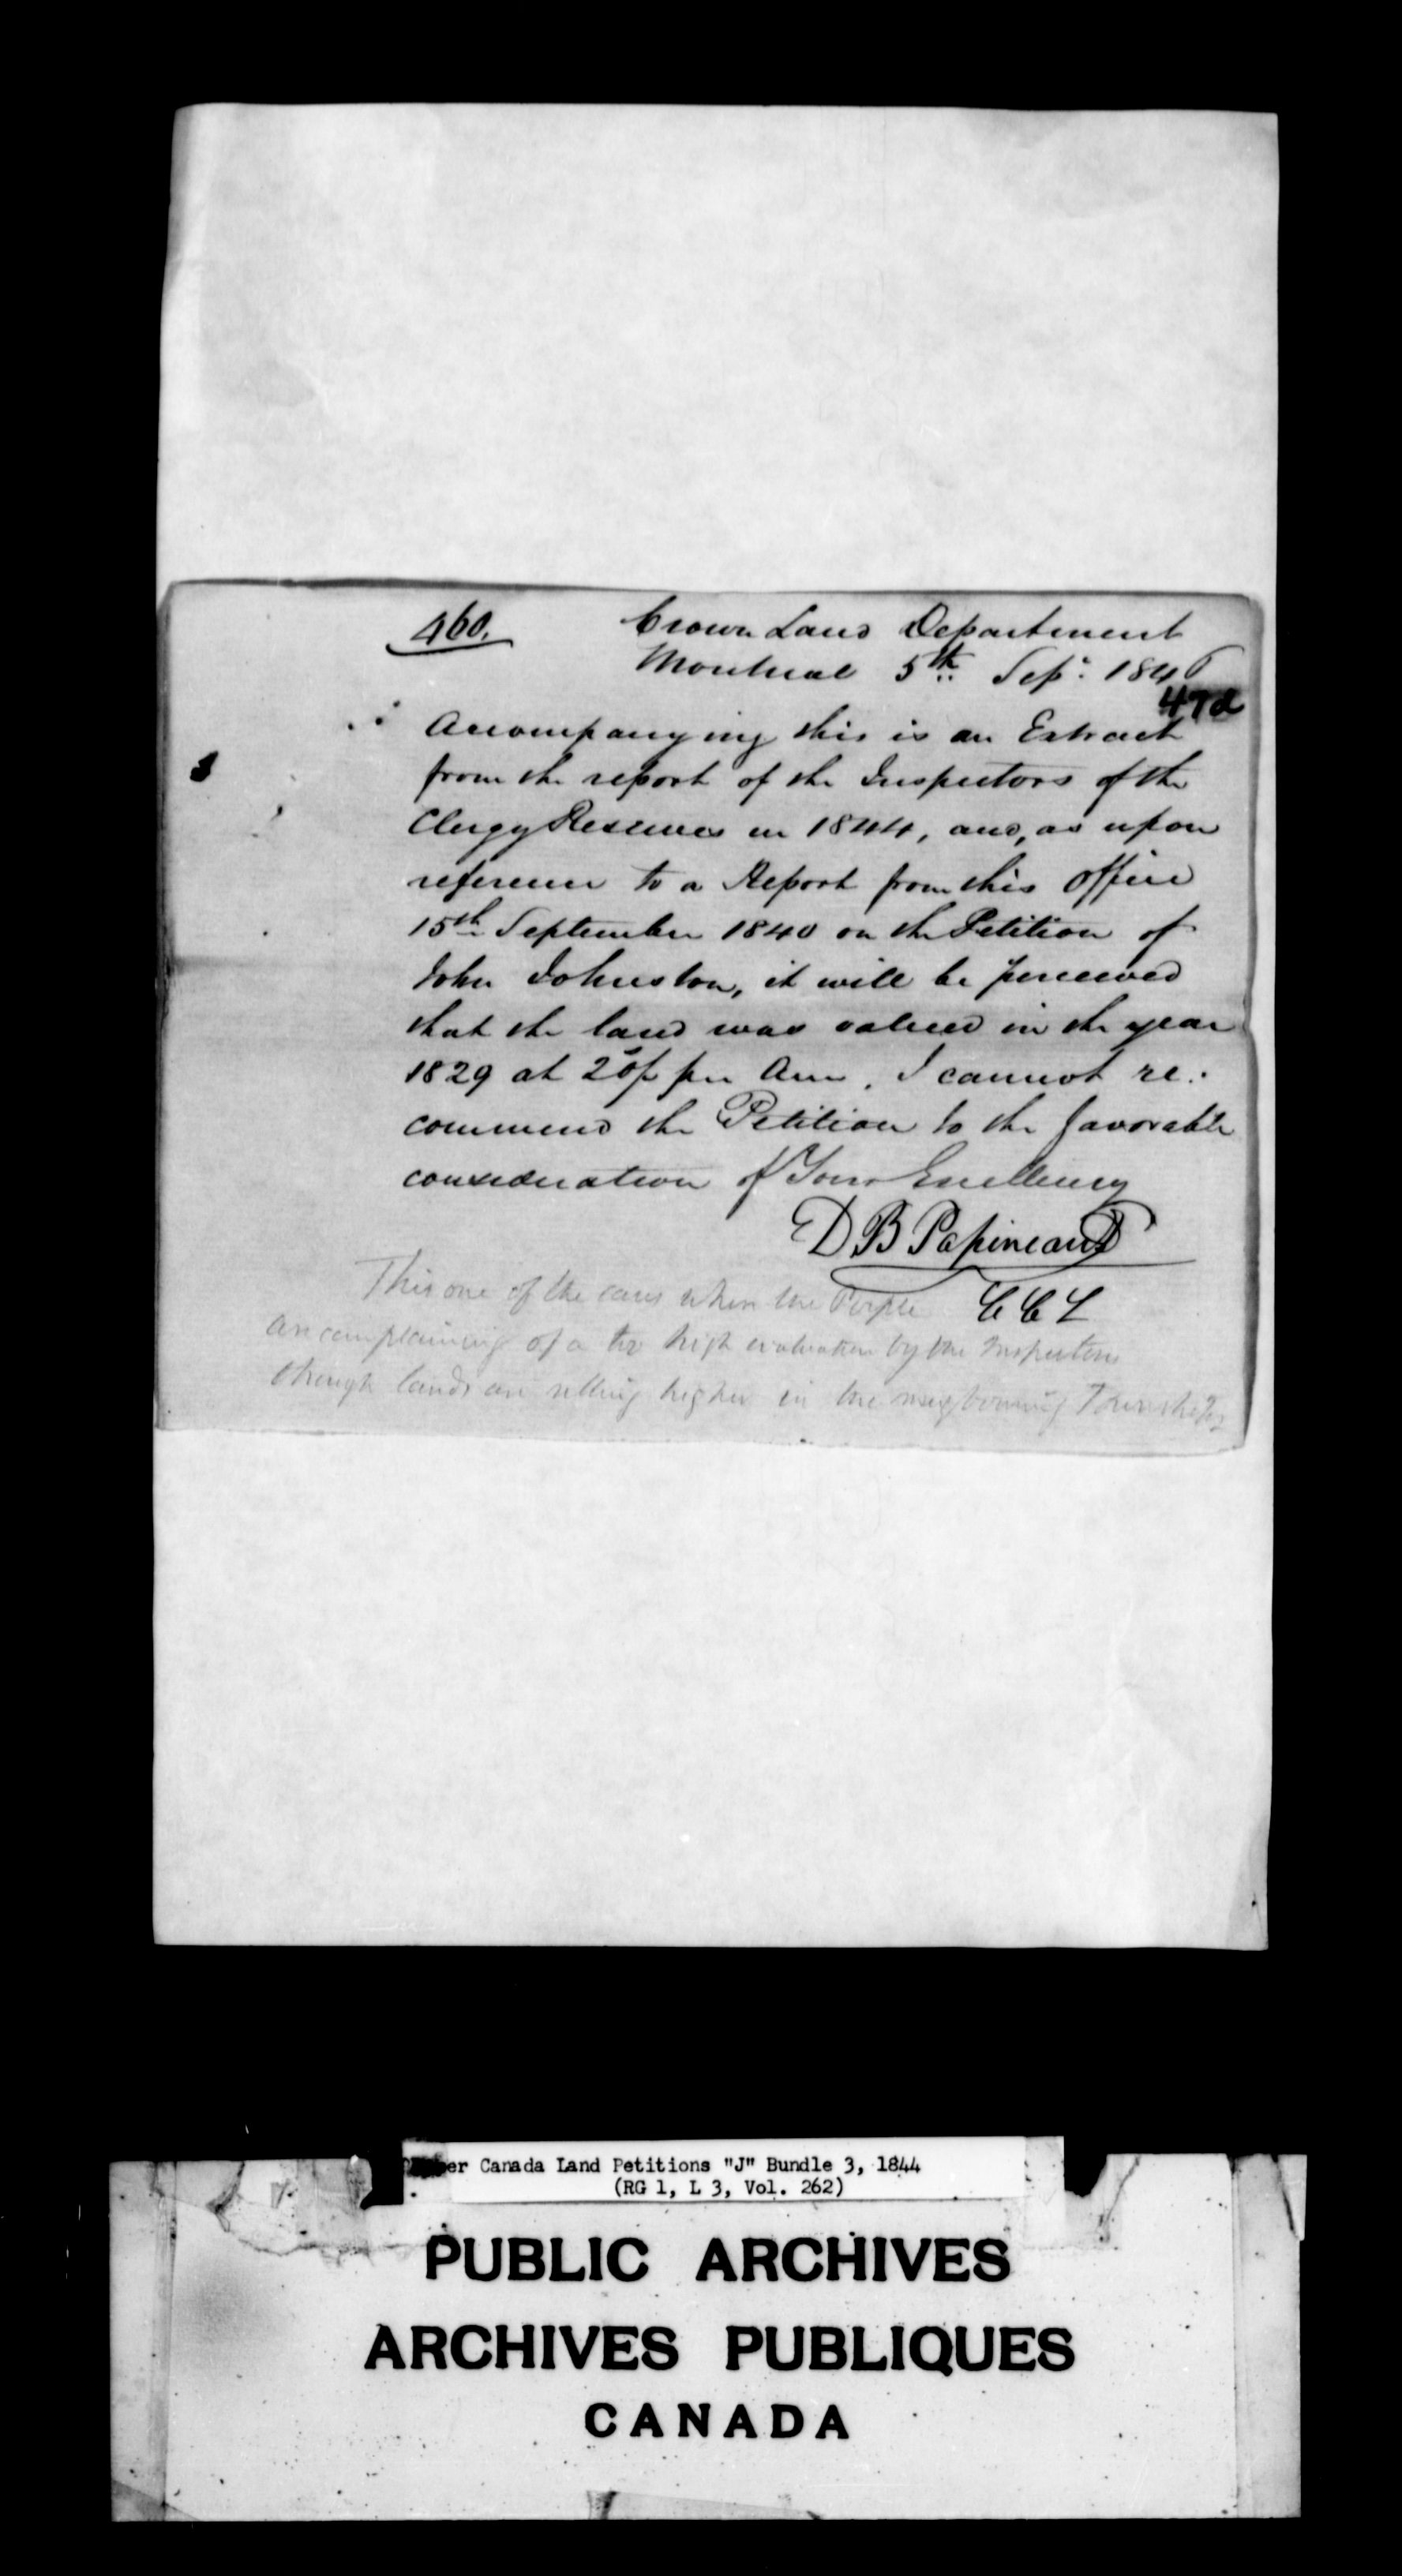 460.
Crown Land Department
Montreal 5th Sepr. 1846
47d
Accompanying this is an Extract
from the report of the Inspectors of the
Clergy Reserves in 1844, and, as upon
reference to a Report from this Office
15th September 1840 on the Petition of
John Johnston, it will be perceived
that the land was valued in the year
1829 at per Acre, I cannot re:
commend the Petition to the favorable
consideration of Your Excellency
D B Papineau
C C L
This one of the cases when the People
are complaining of a too high evaluation by the Inspectors
though lands are selling higher in the neighbouring Townships
er Canada Land Petitions "J" Bundle 3, 1844
(RG 1, L 3, Vol. 262)
PUBLIC ARCHIVES
ARCHIVES PUBLIQUES
CANADA